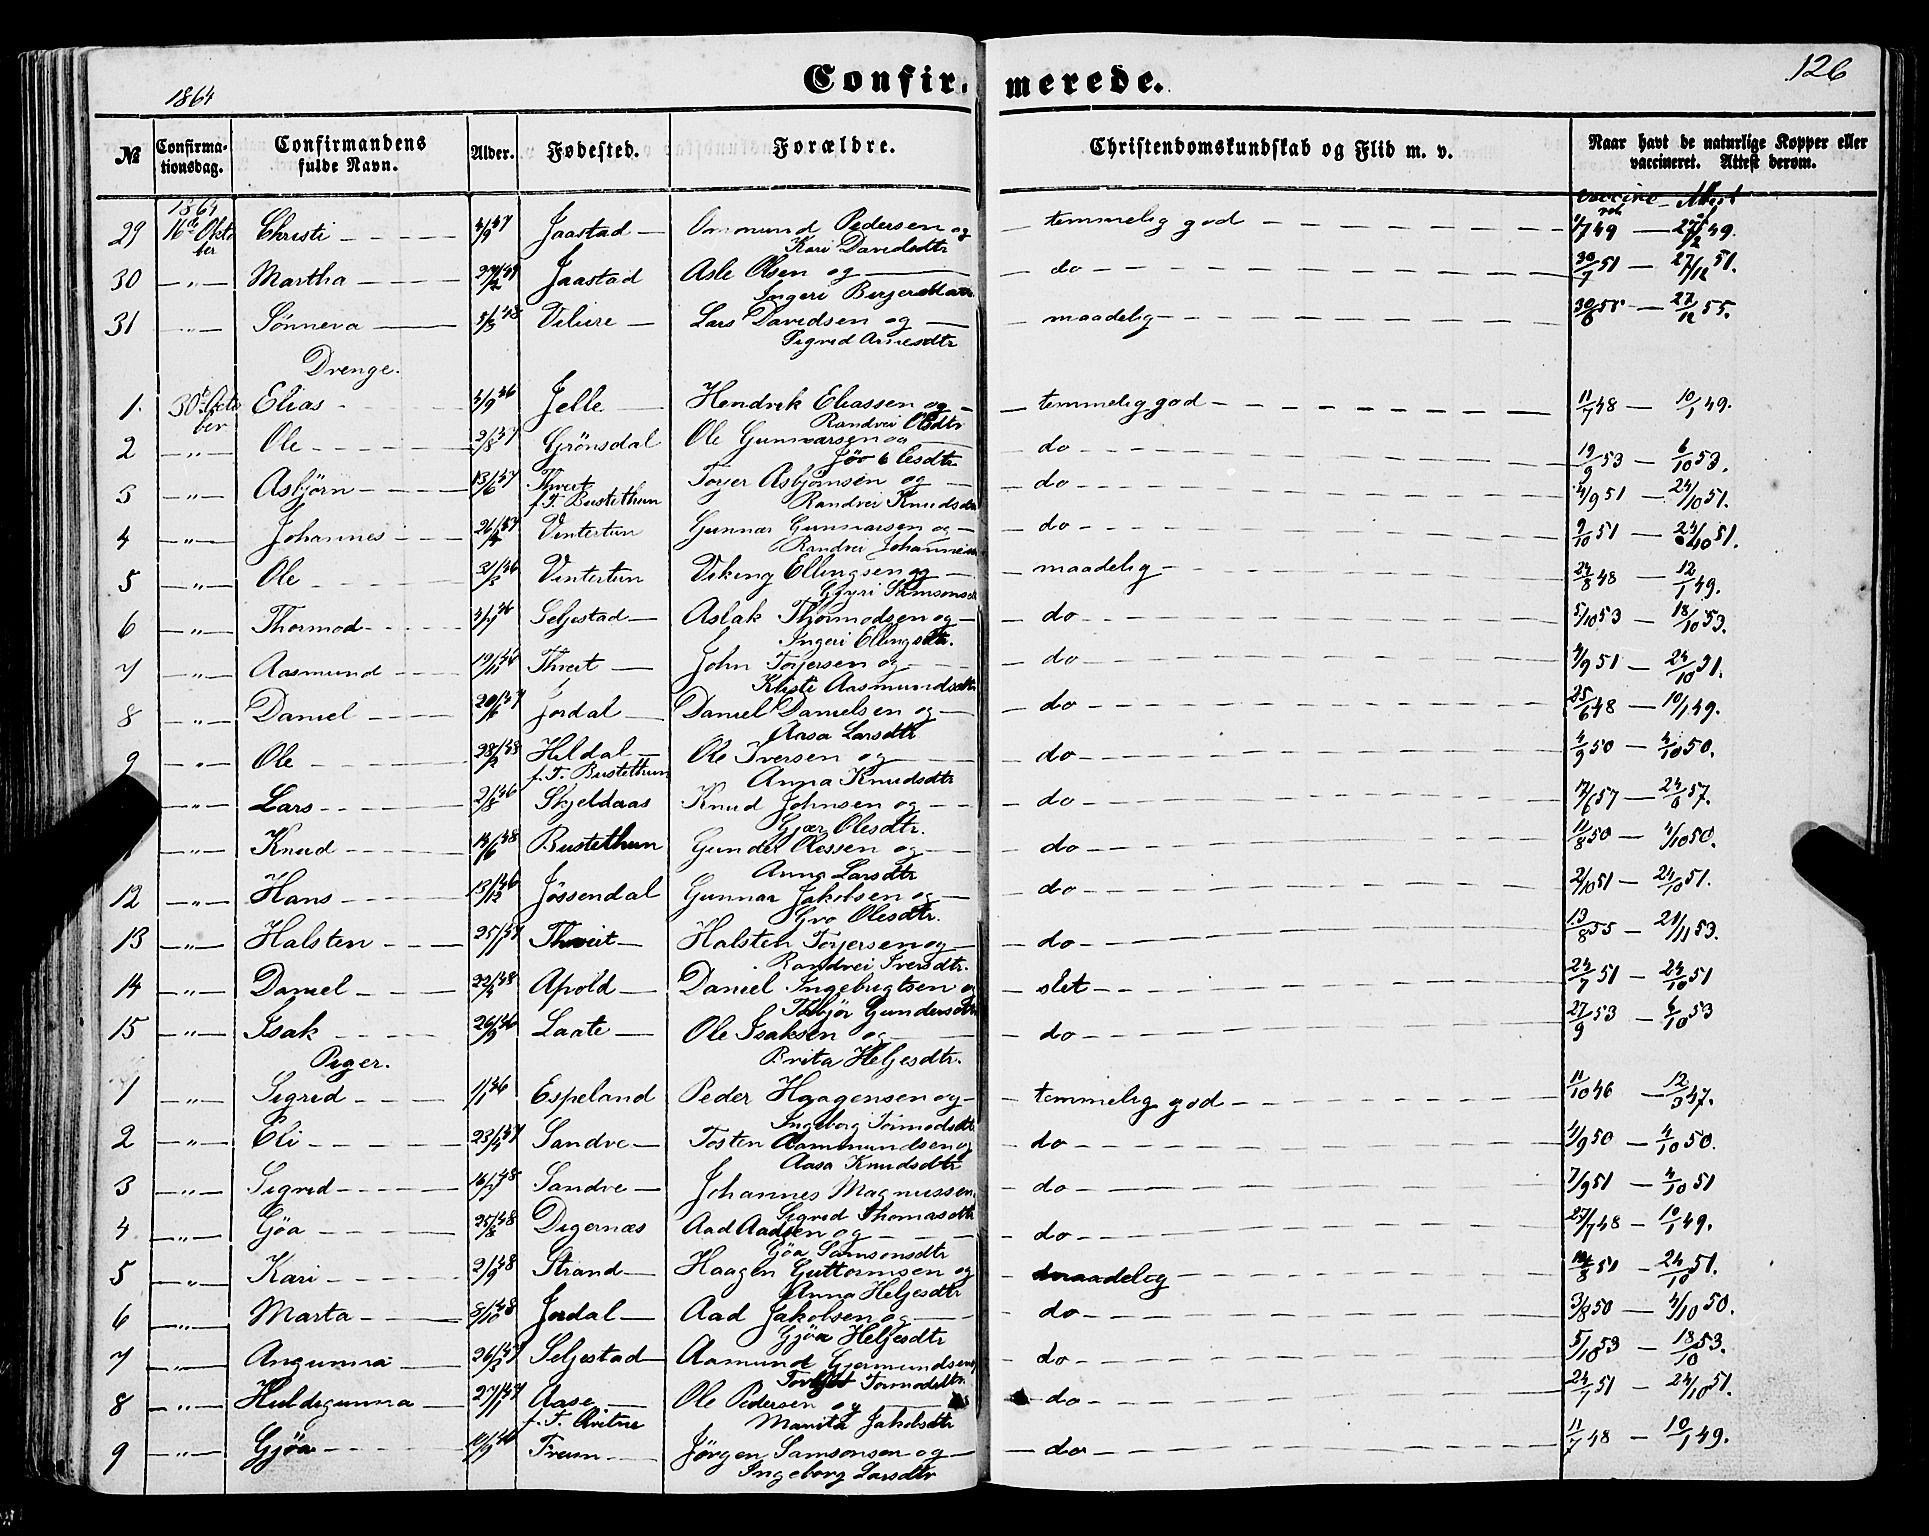 1864
Confir. merede.
126
№ Confirma-tionsdag. Confirmandens fulde Navn. Alder. Fødested. Forældre. Christendomskundskab og Flid m. v. Naar havt de naturlige Kopper eller vaccineret. Attest derom.
1864 vaccine Attest
29 16de Okto Christi Jaastad Omund Pedersen og temmelig god 49 49.
ber Kari Davidsdtr
30 " Martha Jaastad Asle Olsen og do 30/7 51 27/12 51.
Ingeri
31 " Sønneva Lars Davidsen og maadelig 27/12 55.
Sigrid Arnesdtr
Drenge.
1. 30te Octo Elias Jelle Hendrik Eliassen og temmelig god 11/7 48 10/1 49.
ber Randvei Olsdtr
2 " Ole 2/8 47 Grönsdal Ole Gunnarsen og do 19/9 53 6/10 53.
3 " Asbjörn 13/6 47 Thveit Torjer Asbjörnsen og do 4/9 51 24/10 51.
f. T. Bustethun Randvei Knudsdtr
4 " Johannes Vintertun Gunnar Gunnarsen og do 9/10 51 24/10 51.
Randvei
5 " Ole Vintertun Viking Ellingsen og maadelig 24/8 48 12/1 49.
6 " Thormod Seljestad Aslak Thormodsen og do 5/10 53 18/10 53.
Ingeri Ellingsdtr.
7 " Aasmund Thveit John Torjersen og do 4/9 51 24/10 51.
Christi Aasmundsdtr
8 " Daniel Jordal Daniel Danielsen og do 25/6 48 10/1 49.
Aasa Larsdtr
9 " Ole 28/2 48 Hildal Ole Iversen og do 4/9 50 4/10 50.
f. T. Bustethun Anna Knudsdtr
" Lars 2/8 46 Skjeldaas Knud Johnsen og do 57 57.
Olesdtr.
" Knud 48 Bustethun Gunder Olsen og do 11/8 50 4/10 50.
Anna Larsdtr
12 " Hans 13/12 46 Jössendal Gunnar Jakobsen og do 2/10 51 24/10 51.
Gro Olesdtr.
13 " Halsten 25/1 47 Thveit Halsten Torjersen og do 13/8 55 53.
Randvei Iversdtr.
14 " Daniel 48 Apold Daniel Ingebrigtsen og slet 24/7 51 24/10 51
Gundersdtr
15 " Isak 26/9 46 Laate Ole Isaksen og do 27/9 53 6/10 53
Brita Heljesdtr.
Piger.
1 " Sigrid 1/1 46 Espeland Peder Haagensen og temmelig god 11/10 46 12/3 47.
Ingeborg Tormodsdtr
2 " Eli 47 Sandve Tosten Aamundsen og do 4/9 50 4/10 50.
Aasa Knudsdtr
3 " Sigrid 48 Sandve Johannes Magnussen do 7/9 51 4/10 51
Sigrid Thomasdtr
4 " Gjöa 25/8 48 Digernæs Aad Aadsen og do 27/7 48 10/1 49.
Gjöa Samsonsdtr
5 " Kari 2/9 48 Strand Haagen Guttormsen og maadelig 51 24/10 51.
Anna Heljesdtr
6 " Marta 8/10 48 Jordal Aad Jakobsen og do 3/8 50 4/10 50.
Gjöa Heljesdtr
7 " Angunna Seljestad Aamund Gjermundsen do 5/10 53 18/10 53.
Tormodsdtr
8 " Huldegunna 27/1 47 Aase Ole Pedersen og do 24/7 51 24/10 51.
f. T. Marita Jakobsdtr
9 " Gjöa 46 Freim Jörgen Samsonsen og do 11/7 48 10/1 49.
Ingeborg Larsdtr